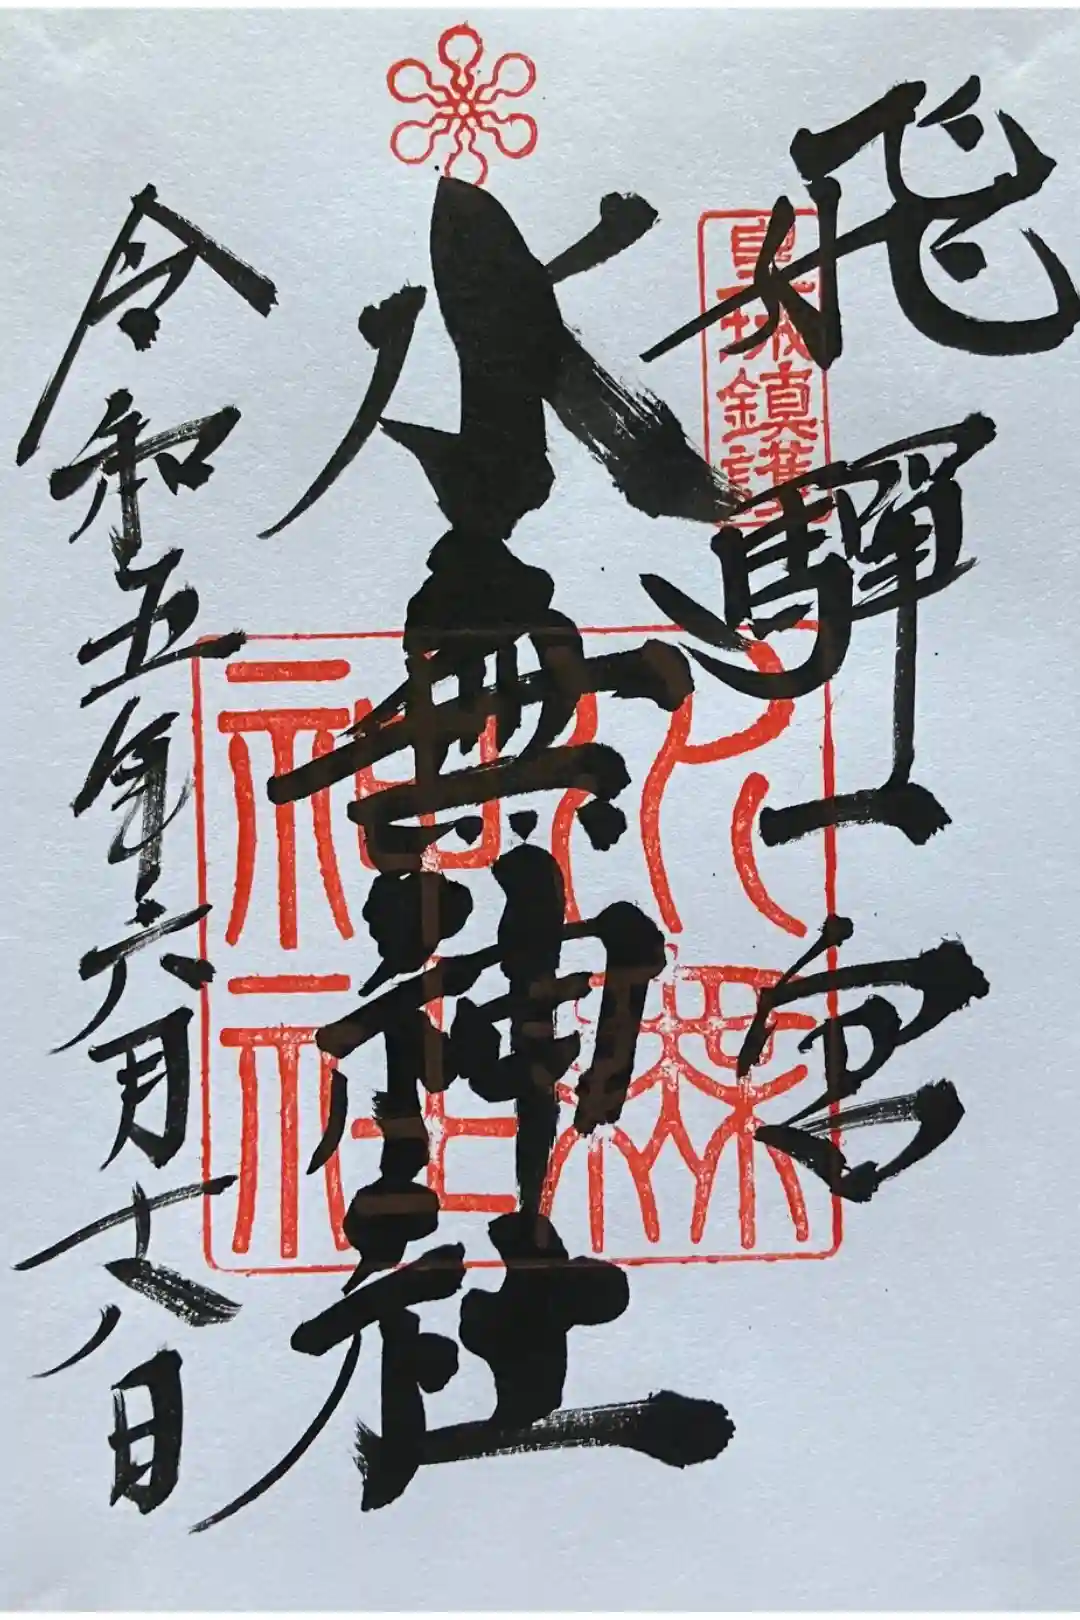 飛驒一宮
皇城鎮護
水無神社
水無
神社
令和五年六月十八日